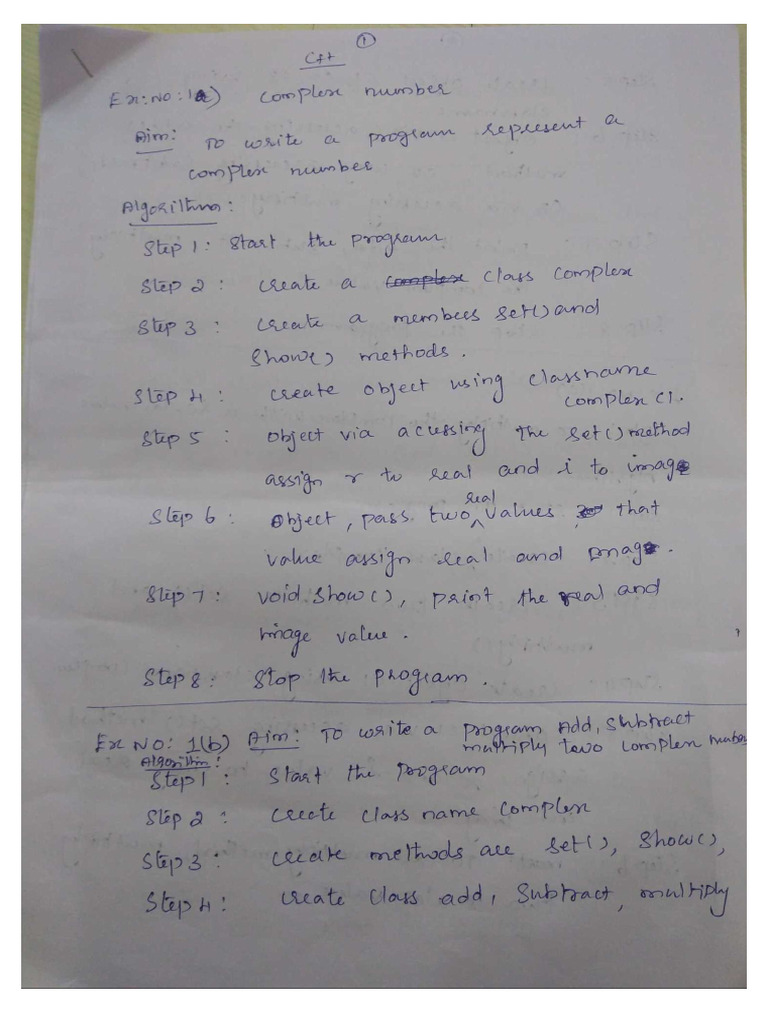 1
C++
Ex: NO: 1a) complex number
Aim: To write a program represent a
complex number
Algorithm:
Step 1: Start the program
Step 2: create a complex class complex
Step 3: create a members set() and
show() methods.
Step 4: create object using classname
complex c1.
Step 5: object via acussing the set() method
assign r to real and i to image
real
Step 6: object, pass two values that
value assign real and image.
Step 7: void show(), print the real and
image value.
Step 8: Stop the program.
Ex NO: 1(b) Aim: To write a program Add, Subtract
multiply two complex number
Algorithm:
Step 1: Start the program
Step 2: create class name complex
Step 3: create methods are set(), show(),
Step 4: create class add, Subtract, multiply